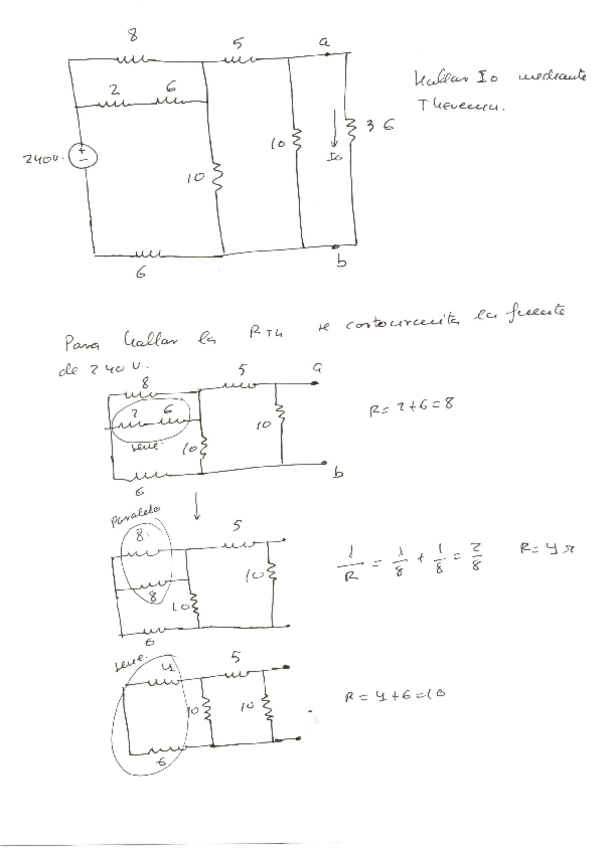 8
5
a
Hallar Io mediante
Thevenin.
2 6
240V.
+
-
10
10
Io
36
6
b
Para hallar la RTH se cortocircuita la fuente
de 240V.
8
5
a
2 6
serie.
10
10
R=2+6=8
6
b
Paralelo
8
5
8
10
10
6
1/R = 1/8 + 1/8 = 2/8 R=4Ω
serie.
4
5
10
10
R=4+6=10
6